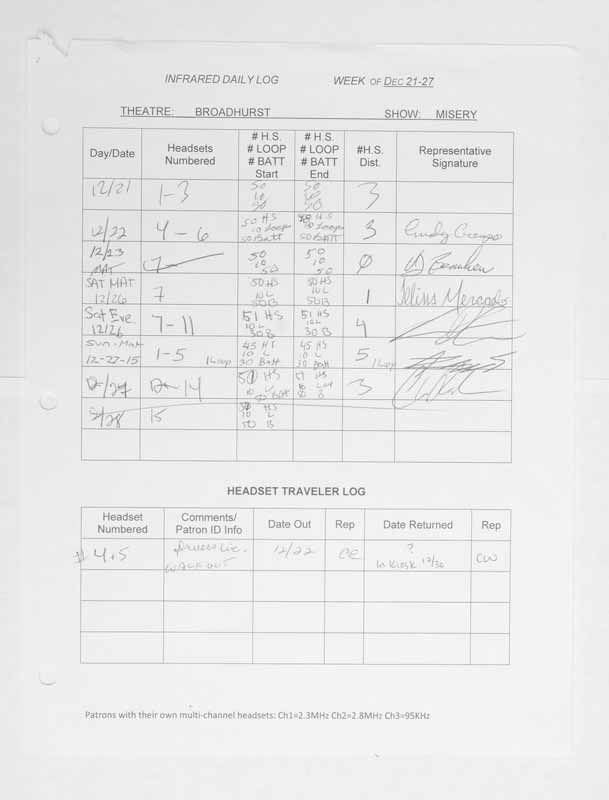 INFRARED DAILY LOG WEEK OF DEC 21-27
THEATRE: BROADHURST SHOW: MISERY
Day/Date
Headsets
Numbered
# H.S.
# LOOP
# BATT
Start
# H.S.
# LOOP
# BATT
End
#H.S.
Dist.
Representative
Signature
12/21
1-3
50
10
50
50
10
50
3
12/22
4-6
50 HS
10 Loop
50 Batt
HS
10 Loop
50 BATT
3
12/23
MAT
7
50
10
50
50
10
50
0
SAT MAT
12/26
7
50 HS
10 L
50 B
50 HS
10 L
50 B
1
Sat Eve.
12/26
7-11
51 HS
10 L
30 B
51 HS
10 L
30 B
4
Sun. Mat
12-27-15
1-5 1 Loop
45 HS
10 L
30 Batt
45 HS
10 L
30 Batt
5 1 Loop
14
HS
Batt
HS
3
15
HS
10 L
50 B
HEADSET TRAVELER LOG
Headset
Numbered
Comments/
Patron ID Info
Date Out
Rep
Date Returned
Rep
# 4+5
WALK OUT
12/22
CC
?
In Kiosk 12/30
CW
Patrons with their own multi-channel headsets: Ch1=2.3MHz Ch2=2.8MHz Ch3=95KHz